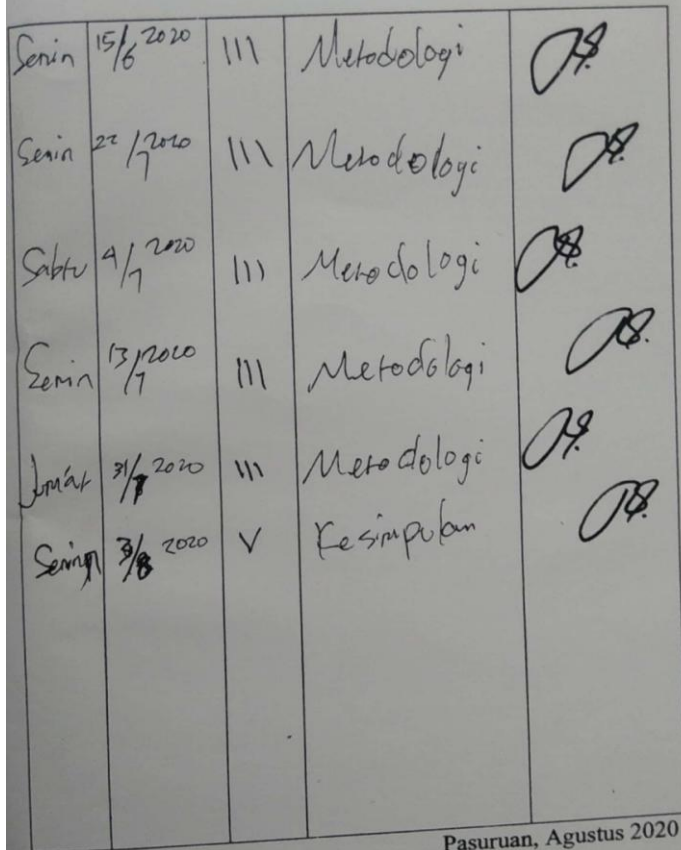 Senin 15/6 2020 III Metodologi
Senin 22/7 2020 III Metodologi
Sabtu 4/7 2020 III Metodologi
Senin 13/7 2020 III Metodologi
Jum'at 31/7 2020 III Metodologi
Senin 3/8 2020 V Kesimpulan
Pasuruan, Agustus 2020